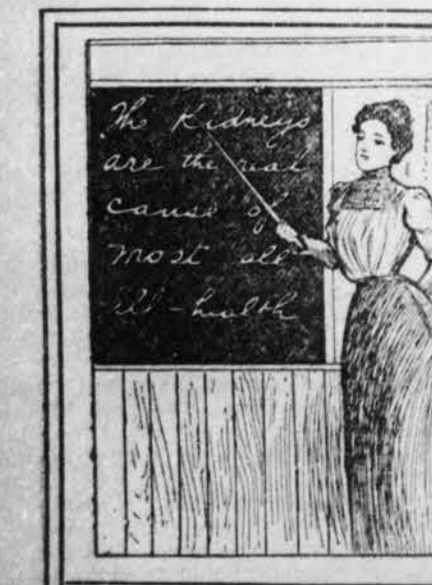 The Kidneys
are the real
cause of
most all
ill-health